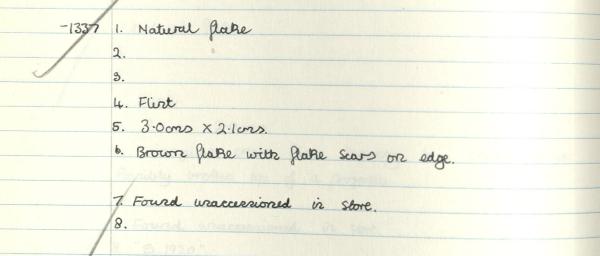 -1337 1. Natural flake
2.
3.
4. Flint
5. 3.0cms X 2.1cms.
6. Brown flake with flake scars on edge.
7. Found unaccessioned in store.
8.